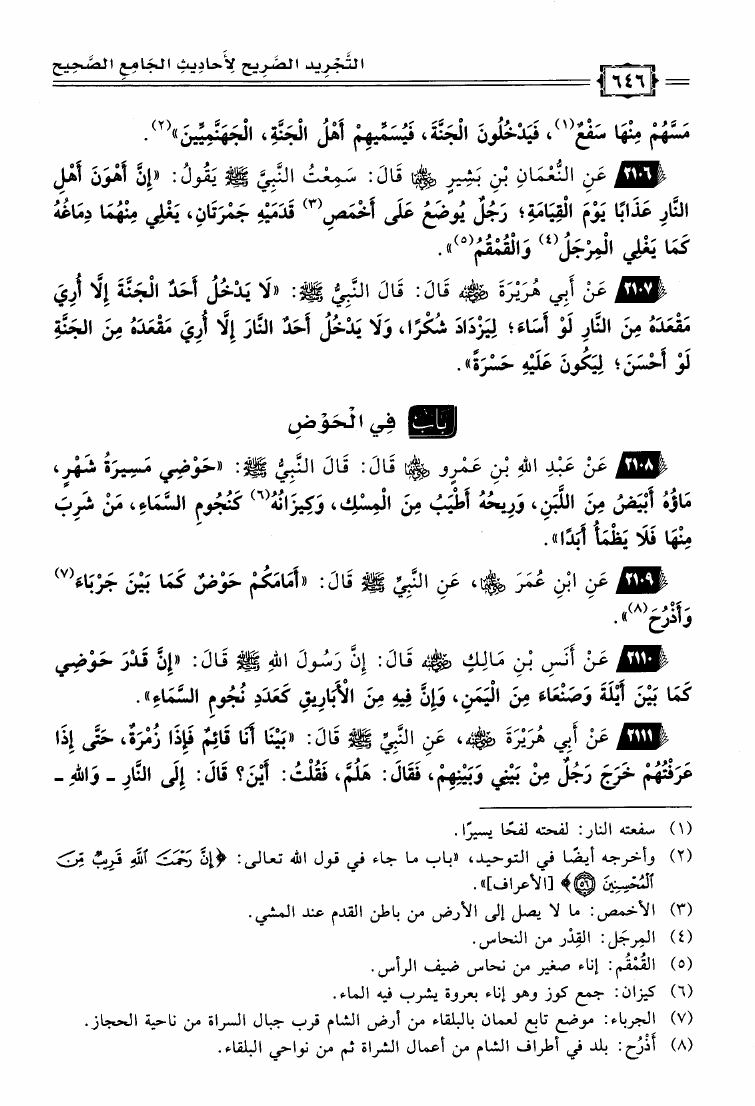 التَّجْرِيد الصَّرِيح لِأَحَادِيثِ الجَامِعِ الصَّحِيح
٦٤٦
مَسَّهُمْ مِنْهَا سَفْعٌ(١)، فَيَدْخُلُونَ الْجَنَّةَ، فَيُسَمِّيهِمْ أَهْلُ الْجَنَّةِ، الْجَهَنَّمِيِّينَ»(٢).
٢١٠٦ عَنِ النُّعْمَانِ بْنِ بَشِيرٍ ﵄ قَالَ: سَمِعْتُ النَّبِيَّ ﷺ يَقُولُ: «إِنَّ أَهْوَنَ أَهْلِ
النَّارِ عَذَابًا يَوْمَ الْقِيَامَةِ؛ رَجُلٌ يُوضَعُ عَلَى أَخْمَصِ(٣) قَدَمَيْهِ جَمْرَتَانِ، يَغْلِي مِنْهُمَا دِمَاغُهُ
كَمَا يَغْلِي الْمِرْجَلُ(٤) وَالْقُمْقُمُ(٥)».
٢١٠٧ عَنْ أَبِي هُرَيْرَةَ ﵁ قَالَ: قَالَ النَّبِيُّ ﷺ: «لَا يَدْخُلُ أَحَدٌ الْجَنَّةَ إِلَّا أُرِيَ
مَقْعَدَهُ مِنَ النَّارِ لَوْ أَسَاءَ؛ لِيَزْدَادَ شُكْرًا، وَلَا يَدْخُلُ أَحَدٌ النَّارَ إِلَّا أُرِيَ مَقْعَدَهُ مِنَ الْجَنَّةِ
لَوْ أَحْسَنَ؛ لِيَكُونَ عَلَيْهِ حَسْرَةً».
بَابٌ فِي الْحَوْضِ
٢١٠٨ عَنْ عَبْدِ اللهِ بْنِ عَمْرٍو ﵄ قَالَ: قَالَ النَّبِيُّ ﷺ: «حَوْضِي مَسِيرَةُ شَهْرٍ،
مَاؤُهُ أَبْيَضُ مِنَ اللَّبَنِ، وَرِيحُهُ أَطْيَبُ مِنَ الْمِسْكِ، وَكِيزَانُهُ(٦) كَنُجُومِ السَّمَاءِ، مَنْ شَرِبَ
مِنْهَا فَلَا يَظْمَأُ أَبَدًا».
٢١٠٩ عَنِ ابْنِ عُمَرَ ﵄، عَنِ النَّبِيِّ ﷺ قَالَ: «أَمَامَكُمْ حَوْضٌ كَمَا بَيْنَ جَرْبَاءَ(٧)
وَأَذْرُحَ(٨)».
٢١١٠ عَنْ أَنَسِ بْنِ مَالِكٍ ﵁ قَالَ: إِنَّ رَسُولَ اللهِ ﷺ قَالَ: «إِنَّ قَدْرَ حَوْضِي
كَمَا بَيْنَ أَيْلَةَ وَصَنْعَاءَ مِنَ الْيَمَنِ، وَإِنَّ فِيهِ مِنَ الْأَبَارِيقِ كَعَدَدِ نُجُومِ السَّمَاءِ».
٢١١١ عَنْ أَبِي هُرَيْرَةَ ﵁، عَنِ النَّبِيِّ ﷺ قَالَ: «بَيْنَا أَنَا قَائِمٌ فَإِذَا زُمْرَةٌ، حَتَّى إِذَا
عَرَفْتُهُمْ خَرَجَ رَجُلٌ مِنْ بَيْنِي وَبَيْنِهِمْ، فَقَالَ: هَلُمَّ، فَقُلْتُ: أَيْنَ؟ قَالَ: إِلَى النَّارِ ـ وَاللهِ ـ
(١) سفعته النار: لفحته لفحًا يسيرًا.
(٢) وأخرجه أيضًا في التوحيد، «باب ما جاء في قول الله تعالى: ﴿إِنَّ رَحْمَتَ ٱللَّهِ قَرِيبٌ مِّنَ
ٱلْمُحْسِنِينَ ٥٦﴾ [الأعراف]».
(٣) الأخمص: ما لا يصل إلى الأرض من باطن القدم عند المشي.
(٤) المِرجَل: القِدْر من النحاس.
(٥) القُمْقُم: إناء صغير من نحاس ضيف الرأس.
(٦) كيزان: جمع كوز وهو إناء بعروة يشرب فيه الماء.
(٧) الجرباء: موضع تابع لعمان بالبلقاء من أرض الشام قرب جبال السراة من ناحية الحجاز.
(٨) أَذْرُح: بلد في أطراف الشام من أعمال الشراة ثم من نواحي البلقاء.